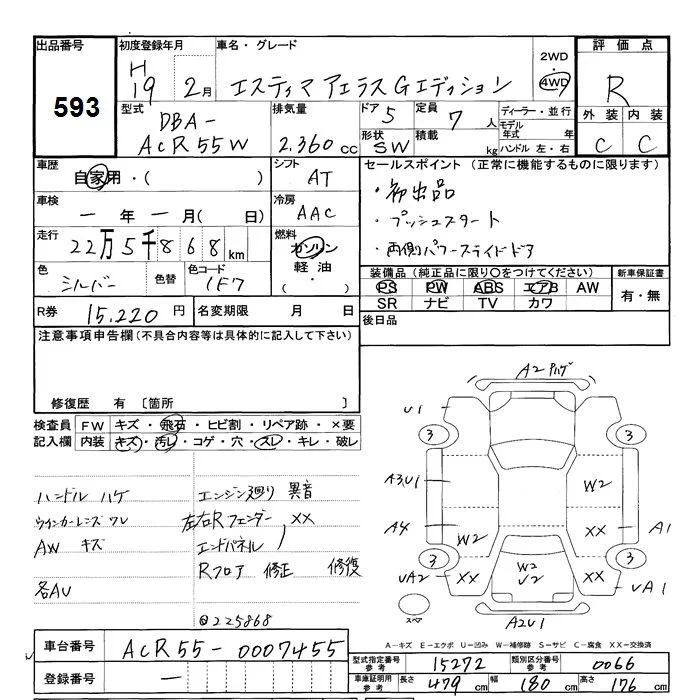 出品番号
593
初度登録年月
H19 2月
車名・グレード
エスティマ アエラス Gエディション
2WD
・
4WD
評価点
R
外装 内装
C C
型式
DBA-
ACR55W
排気量
2.360 cc
ドア 5
形状 SW
定員 7 人
積載 kg
ディーラー・並行
モデル
年式 年
ハンドル 左・右
車歴
自家用・( )
シフト
AT
車検
一 年 一 月( 日)
冷房
AAC
走行
22万5千868 km
燃料
ガソリン
軽油
( ・ )
色
シルバー
色替
色コード
1F7
R券 15.220 円
名変期限 月 日
セールスポイント(正常に機能するものに限ります)
・初出品
・プッシュスタート
・両側パワースライドドア
装備品(純正品に限り○をつけてください)
PS PW ABS エアB AW
SR ナビ TV カワ
新車保証書
有・無
後日品
注意事項申告欄(不具合内容等は具体的に記入して下さい)
修復歴 有〔箇所 〕
検査員 FW キズ・飛石・ヒビ割・リペア跡・×要
記入欄 内装 キズ・汚レ・コゲ・穴・スレ・キレ・破レ
ハンドル ハゲ
ウインカーレンズ ワレ
AW キズ
各AU
エンジン廻り 異音
左右Rフェンダー XX
エンドパネル 〃
Rフロア 修正 修復
@225868
A2 ハゲ
U1
3 3
A3,U1
W2
A4
W2
XX
A1
3 3
UA2
XX
W2
U2
XX
UA1
スペア
A2U1
A-キズ E-エクボ U-凹み W-補修跡 S-サビ C-腐食 XX-交換済
車台番号 ACR55-0007455
登録番号 一
型式指定番号
参考
15272
類別区分番号
参考
0066
車庫証明用
参考
長さ 479 cm 幅 180 cm 高さ 176 cm